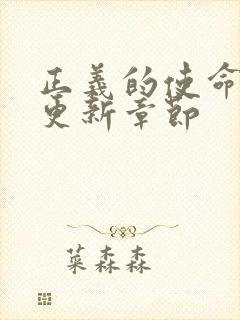 正義的使命
更新章節
菜森森